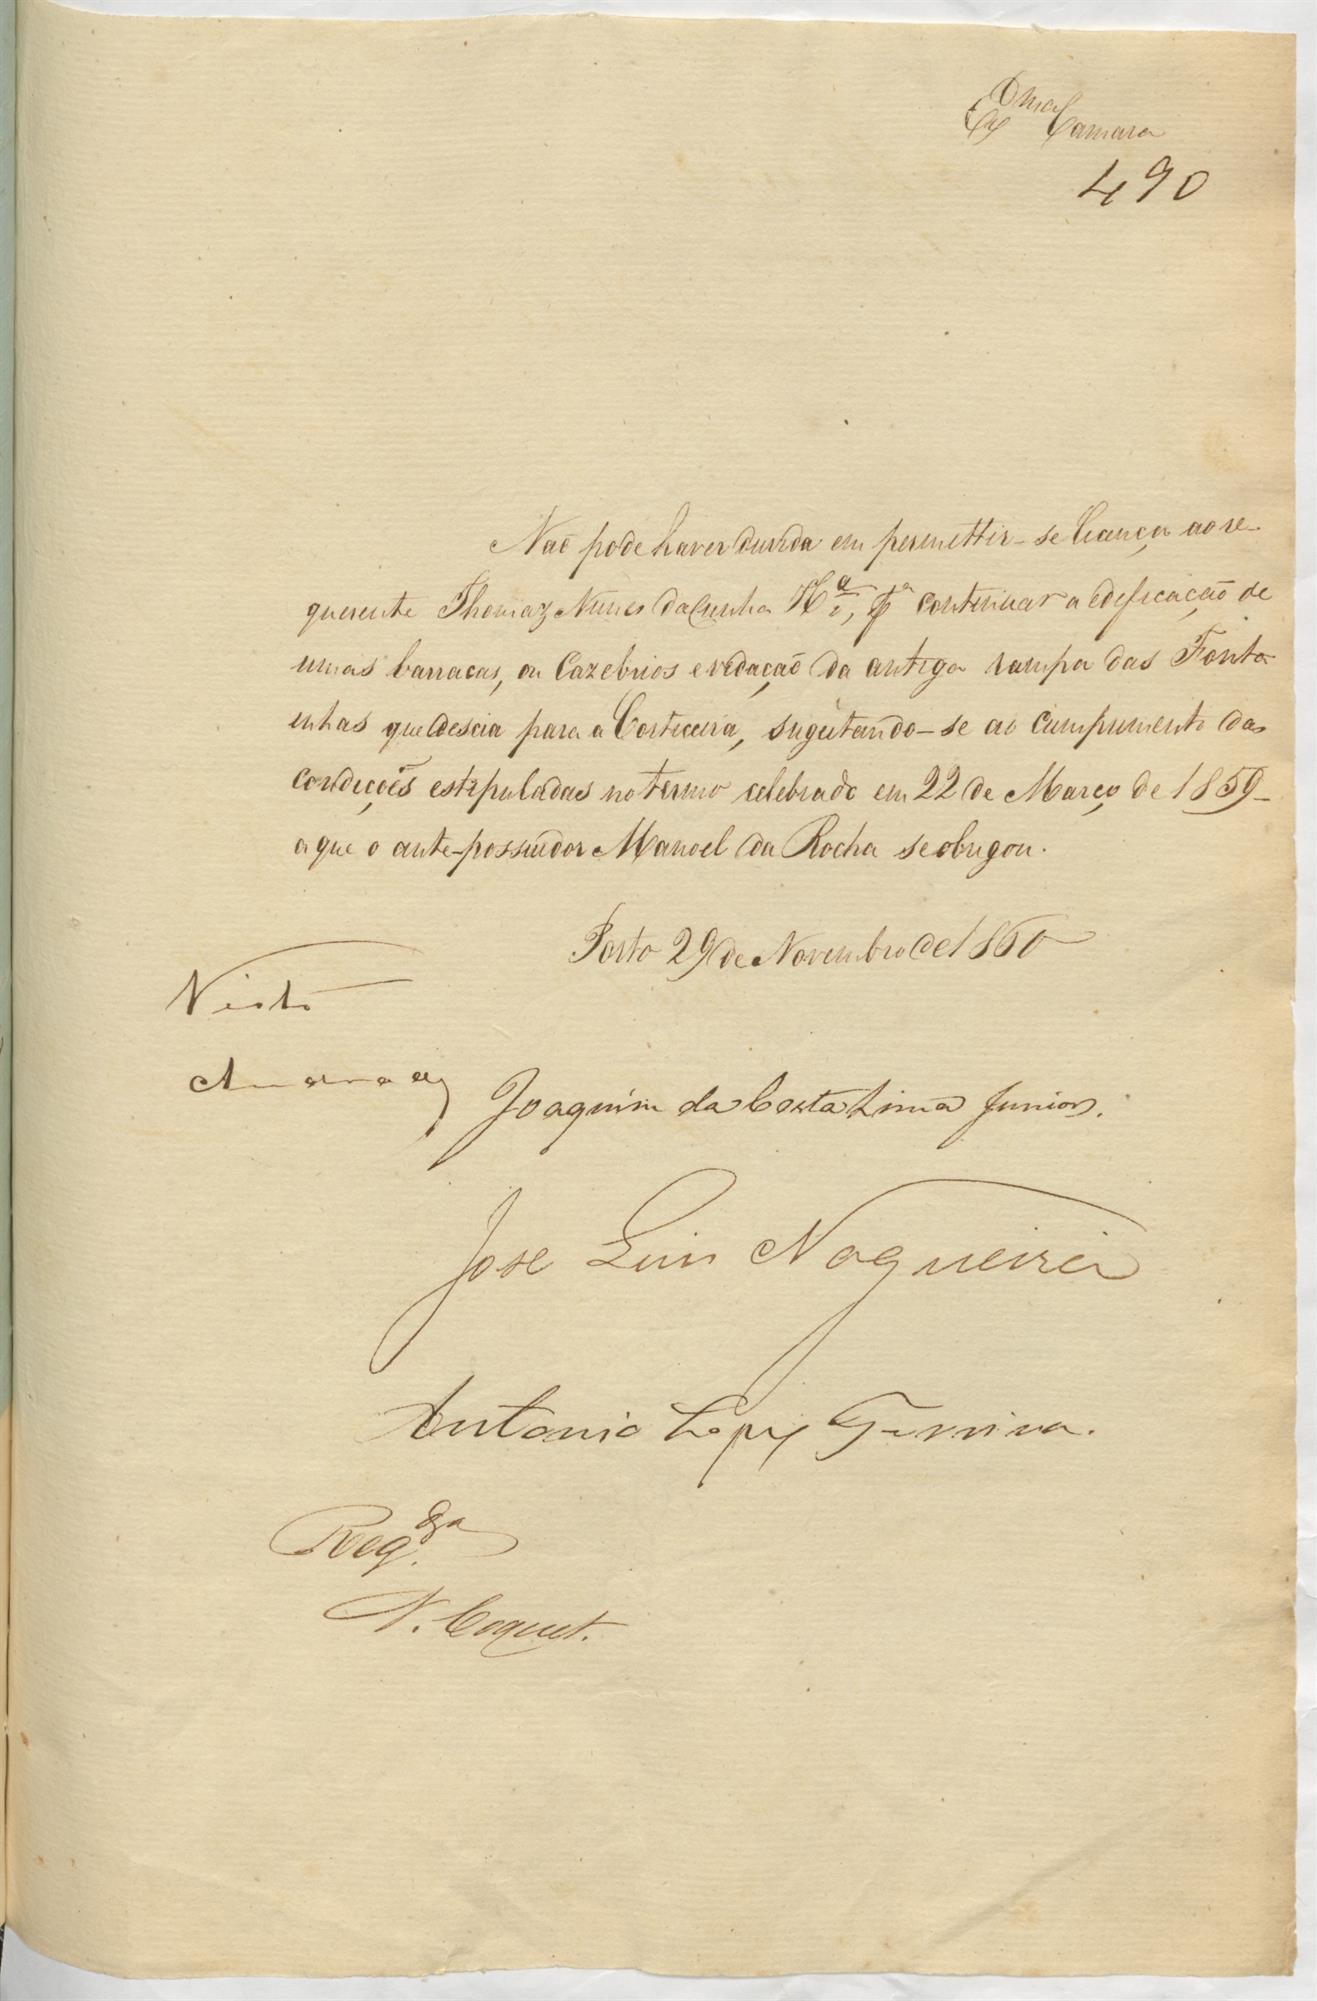 Exma Camara
490
Naõ pode haver duvida em permettir-se licença ao re-
querente Thomaz Nunes da Cunha Ha, pa continuar a edeficação de
umas barracas, ou Cazebrios e vedação da antiga rampa das Fonta
inhas que descia para a Corticeira, sugeitando-se ao cumprimento das
condições estipuladas no termo celebrado em 22 de Março de 1859-
a que o ante-possuidor Manoel da Rocha se obrigou.
Porto 29 de Novembro de 1860
Visto
Joaquim da Costa Lima Junior.
José Luis Nogueira
Antonio Lopes Ferreira.
Regda
N. Coquet.